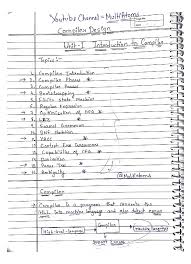 Youtube Channel - MultiAtoms
Compiler Design
Unit-I Introduction to Compiler
Topics :-
1. Compiler Introduction
2. Compiler Phases
3. Compiler Passes
4. Bootstrapping
5. Finite State Machine
6. Regular Expression
7. Optimization of DFA
8. LEX
9. Formal Grammar
10. BNF Notation
11. YACC
12. Context Free Grammar
13. Capabilities of CFG
14. Derivation
15. Parse Tree
16. Ambiguity
@MultiAtoms
Compiler
Compiler is a program that converts the
HLL into machine language and also detect errors
High-level language
Compiler